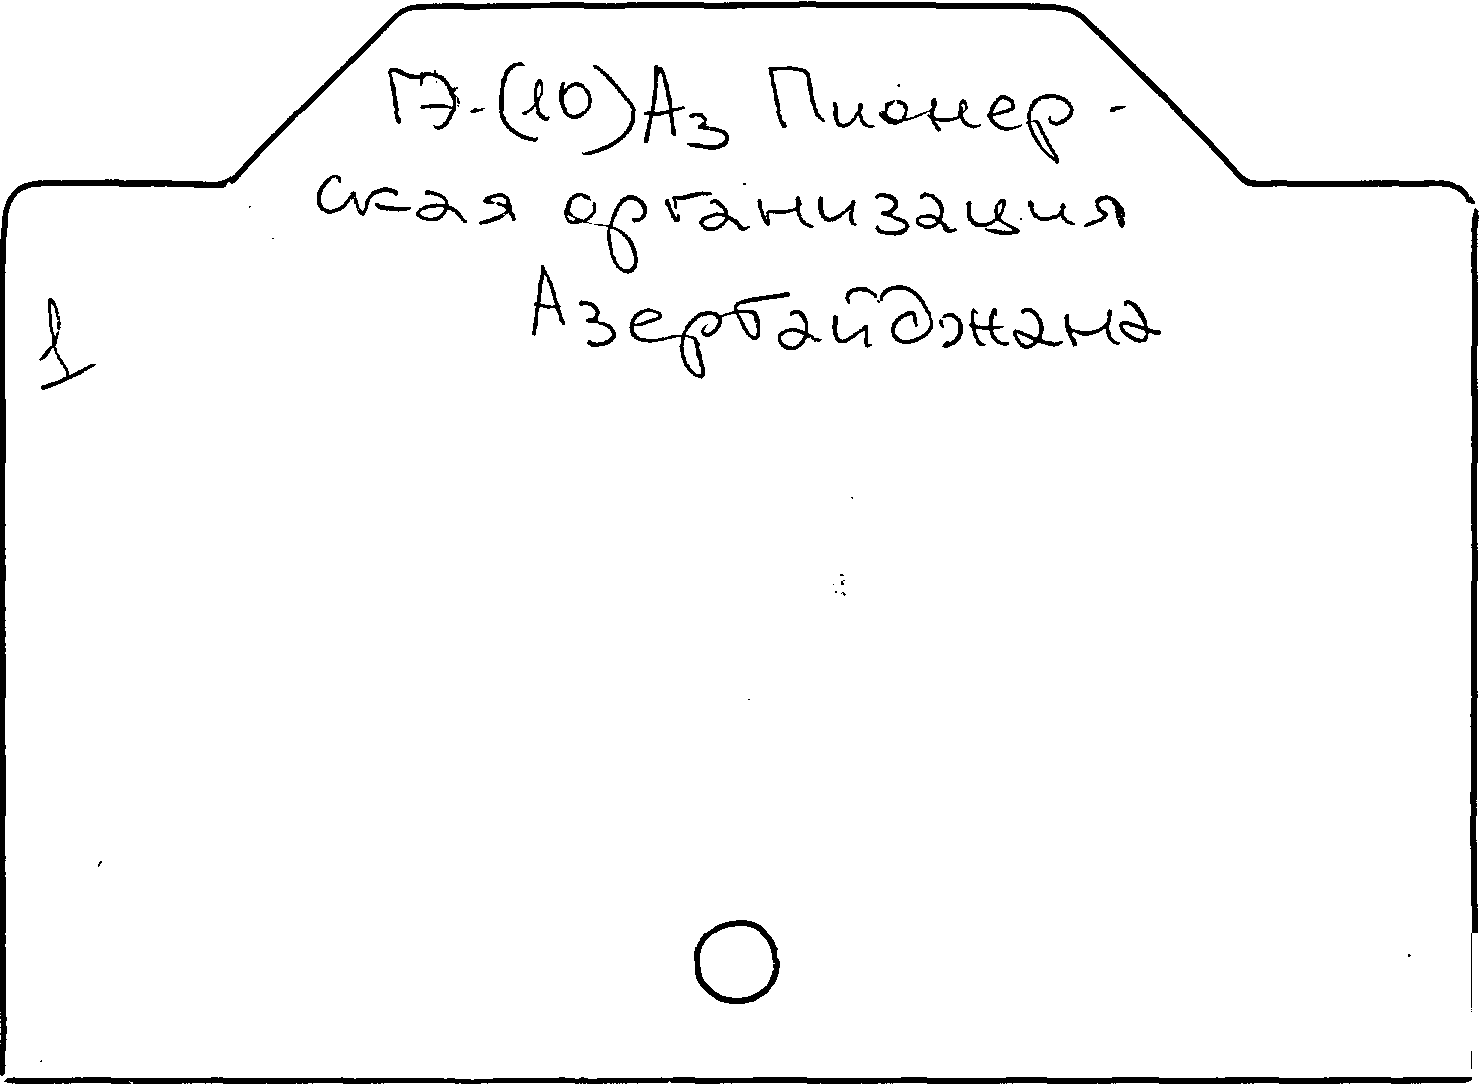 П7-(10)Аз Пионер-
ская организация
Азербайджана
1